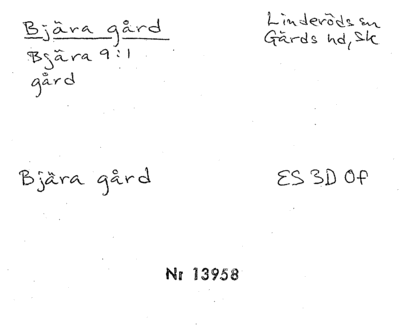 Bjära gård
Linderöds sn
Bjära 9:1
Gärds hd, Sk
gård
Bjära gård
ES 3D 0f
Nr 13958